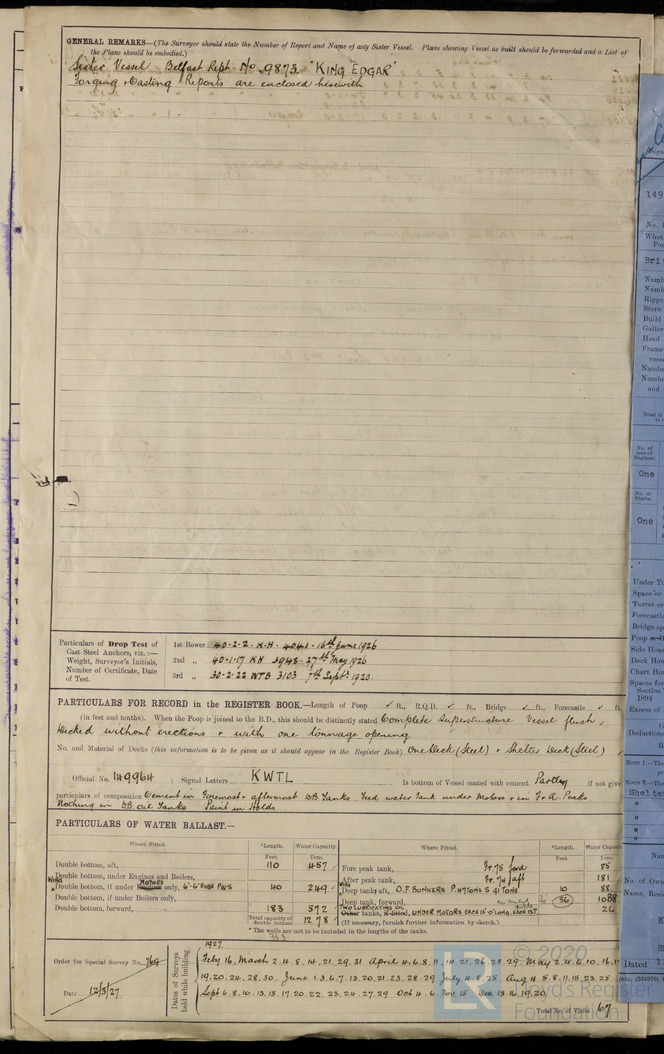 GENERAL REMARKS—(The Surveyor should state the Number of Report and Name of any Sister Vessel. Plans showing Vessel as built should be forwarded and a List of
the Plans should be embodied.)
Sister Vessel Belfast Rept No 9873 "KING EDGAR"
Forging & Casting Reports are enclosed herewith
Particulars of Drop Test of
Cast Steel Anchors, viz.:—
Weight, Surveyor's Initials,
Number of Certificate, Date
of Test.
1st Bower 40-2-2. K.H. 4041. 16th June 1926
2nd „ 40-1-17 KH 3948. 27th May 1926
3rd „ 30-2-22 WTB 3103 7th Septr 1920
PARTICULARS FOR RECORD in the REGISTER BOOK.—Length of Poop ✓ ft., R.Q.D. ✓ ft., Bridge ✓ ft., Forecastle ✓ ft.
(in feet and tenths). When the Poop is joined to the B.D., this should be distinctly stated Complete Superstructure Vessel flush
Decked without erections & with one tonnage opening
No. and Material of Decks (this information is to be given as it should appear in the Register Book) One Deck (Steel) & Shelter Deck (Steel)
Official No. 149964 ; Signal Letters KWTL Is bottom of Vessel coated with cement Partly if not give
particulars of composition Cement in Foremost & aftermost DB Tanks. Feed water Tank under Motors & in F & A. Peaks.
Nothing in DB Oil Tanks Paint in Holds
PARTICULARS OF WATER BALLAST.—
Where Fitted. *Length. Water Capacity. Where Fitted. *Length. Water Capacity
Feet. Tons. Feet. Tons.
Double bottom, aft, 110 457 Fore peak tank, Fr. 75 ford 85
Double bottom, under Engines and Boilers, After peak tank, Fr. 74 aft 181
Double bottom, if under MOTORS only, 6'-6" HIGH P&S 40 249 Deep tank, aft, O.F. BUNKERS P. 47 TONS S 41 TONS 10 88
Double bottom, if under Boilers only, Deep tank, forward, 56 1088
Double bottom, forward, 183 572 TWO LUBRICATING OIL tanks, UNDER MOTORS EACH 25'0" LONG. EACH 13T. 26
Total capacity of double bottom 1278 (If necessary, furnish further information by sketch.)
* The wells are not to be included in the lengths of the tanks.
333
Order for Special Survey No. 769
Date 12/3/27
Dates of Surveys held while building
1927.
Feby 16. March 2.4.8.14.21.29.31 April 4.6.8.11.14.21.26.28.29 May 2.4.6.10.16.17
19.20.24.28.30. June 1.3.6.7.13.20.21.23.28.29 July 4.8.25 Aug 4.5.8.11.15.23.25
Sept 6.8.10.13.15.17.20.22.23.24.27.29 Oct 4.6. Nov. 15 Dec 13.16.19.20
Total No. of Visits: 67
© 2020
Lloyd's Register
Foundation
LR
149
Bri
One
One
Under To
Space or
Turret or
Forecastle
Bridge sp
Side Hous
Deck Hou
Chart Hou
Spaces for
Section
1894
Excess of
Deductions
Note 1.—The
Note 2.—The
Shelte
Nam
No. of Own
Name, Resid
Dated